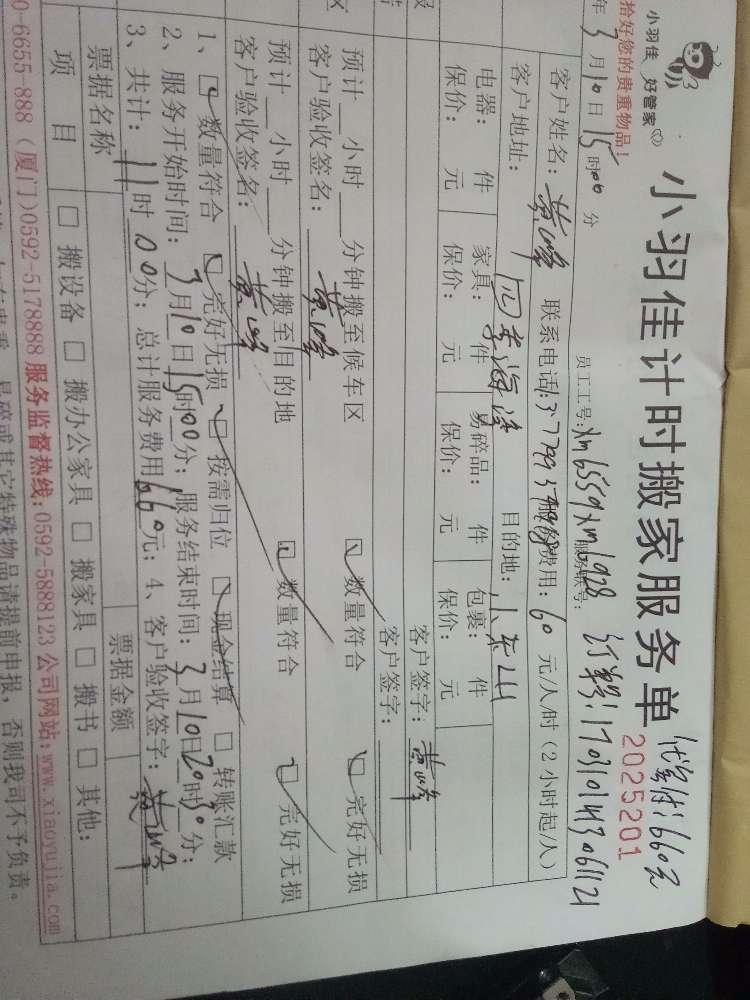 小羽佳 好管家
小羽佳计时搬家服务单
2025201
代金付:660元
拾好您的贵重物品!
年3月10日15时00分
员工工号:xm6559xm6928
订单号:170310143061121
客户姓名:黄峰 联系电话: 服务费用:60元/人/时(2小时起/人)
客户地址: 四季海 目的地:
电器: 件 家具: 件 易碎品: 件 包裹: 件
保价: 元 保价: 元 保价: 元 保价: 元
客户签字:黄峰
客户签字:
预计 小时 分钟搬至候车区 数量符合 完好无损
客户验收签名:黄峰
预计 小时 分钟搬至目的地 数量符合 完好无损
客户验收签名:黄峰
1、数量符合 完好无损 按需归位 现金结算 转账汇款
2、服务开始时间:3月10日15时00分;服务结束时间:3月10日20时30分;
3、共计:11时00分;总计服务费用660元;4、客户验收签字:黄峰
票据名称 票据金额
项目 搬设备 搬办公家具 搬家具 搬书 其他:
0-6655 888 (厦门)0592-5178888 服务监督热线:0592-5888123 公司网站:www.xiaoyujia.com
易碎或其它特殊物品请提前申报,否则我司不予负责。